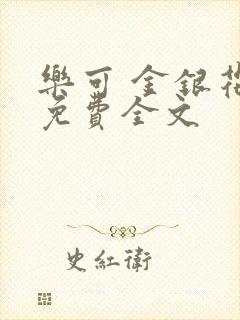 樂可 金銀花
免費全文
史紅衛